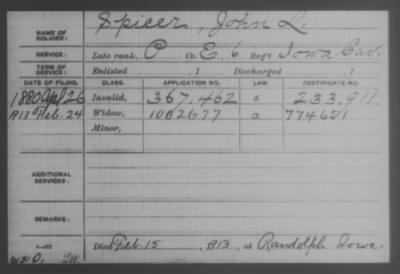 NAME OF SOLDIER: Spicer, John L
SERVICE: Late rank, P Co. E, 6 Reg't Iowa Cav.
TERM OF SERVICE: Enlisted , 1 Discharged , 1
DATE OF FILING. CLASS. APPLICATION NO. LAW. CERTIFICATE NO.
1880 Apl 26 Invalid, 367.462 a 233,911.
1913 Feb. 24 Widow, 1002677 a 774651
Minor,
ADDITIONAL SERVICES:
REMARKS:
Died Feb. 15, 1913, at Randolph Iowa.